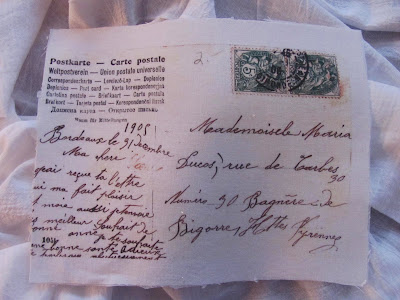 2
Postkarte — Carte postale
Weltpostverein — Union postale universelle
Correspondenzkarte — Levelező-Lap — Dopisnice
Dopisnica — Post card — Karta korespondencyjna
Cartolina postale — Briefkaart — Tarjeta postal
Brefkort — Tarjeta postal — Korespondenční lístek
Дописна карта — Открытое письмо
Raum für Mitteilungen
5
1905
Bordeaux le 31 Décembre
Ma chère
reçue ta lettre
qui ma fait plaisir
meilleur Souhait de
bonne année je te souhait
bonne santé
105
Mademoiselle Maria
Lucos, rue de Tarbes
30
Numéro 30 Bagnère de
Bigorre, Htes Pyrennes